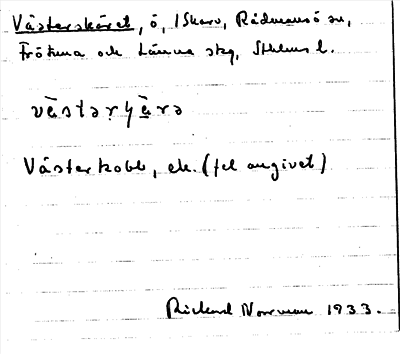 Västerskäret, ö, i Skarv, Rådmansö sn,
Frötuna och Länna skg, Sthlms l.
västərʃä̀rə
Västerkobb, ek. (fel angivet)
Rickard Norrman 1933.